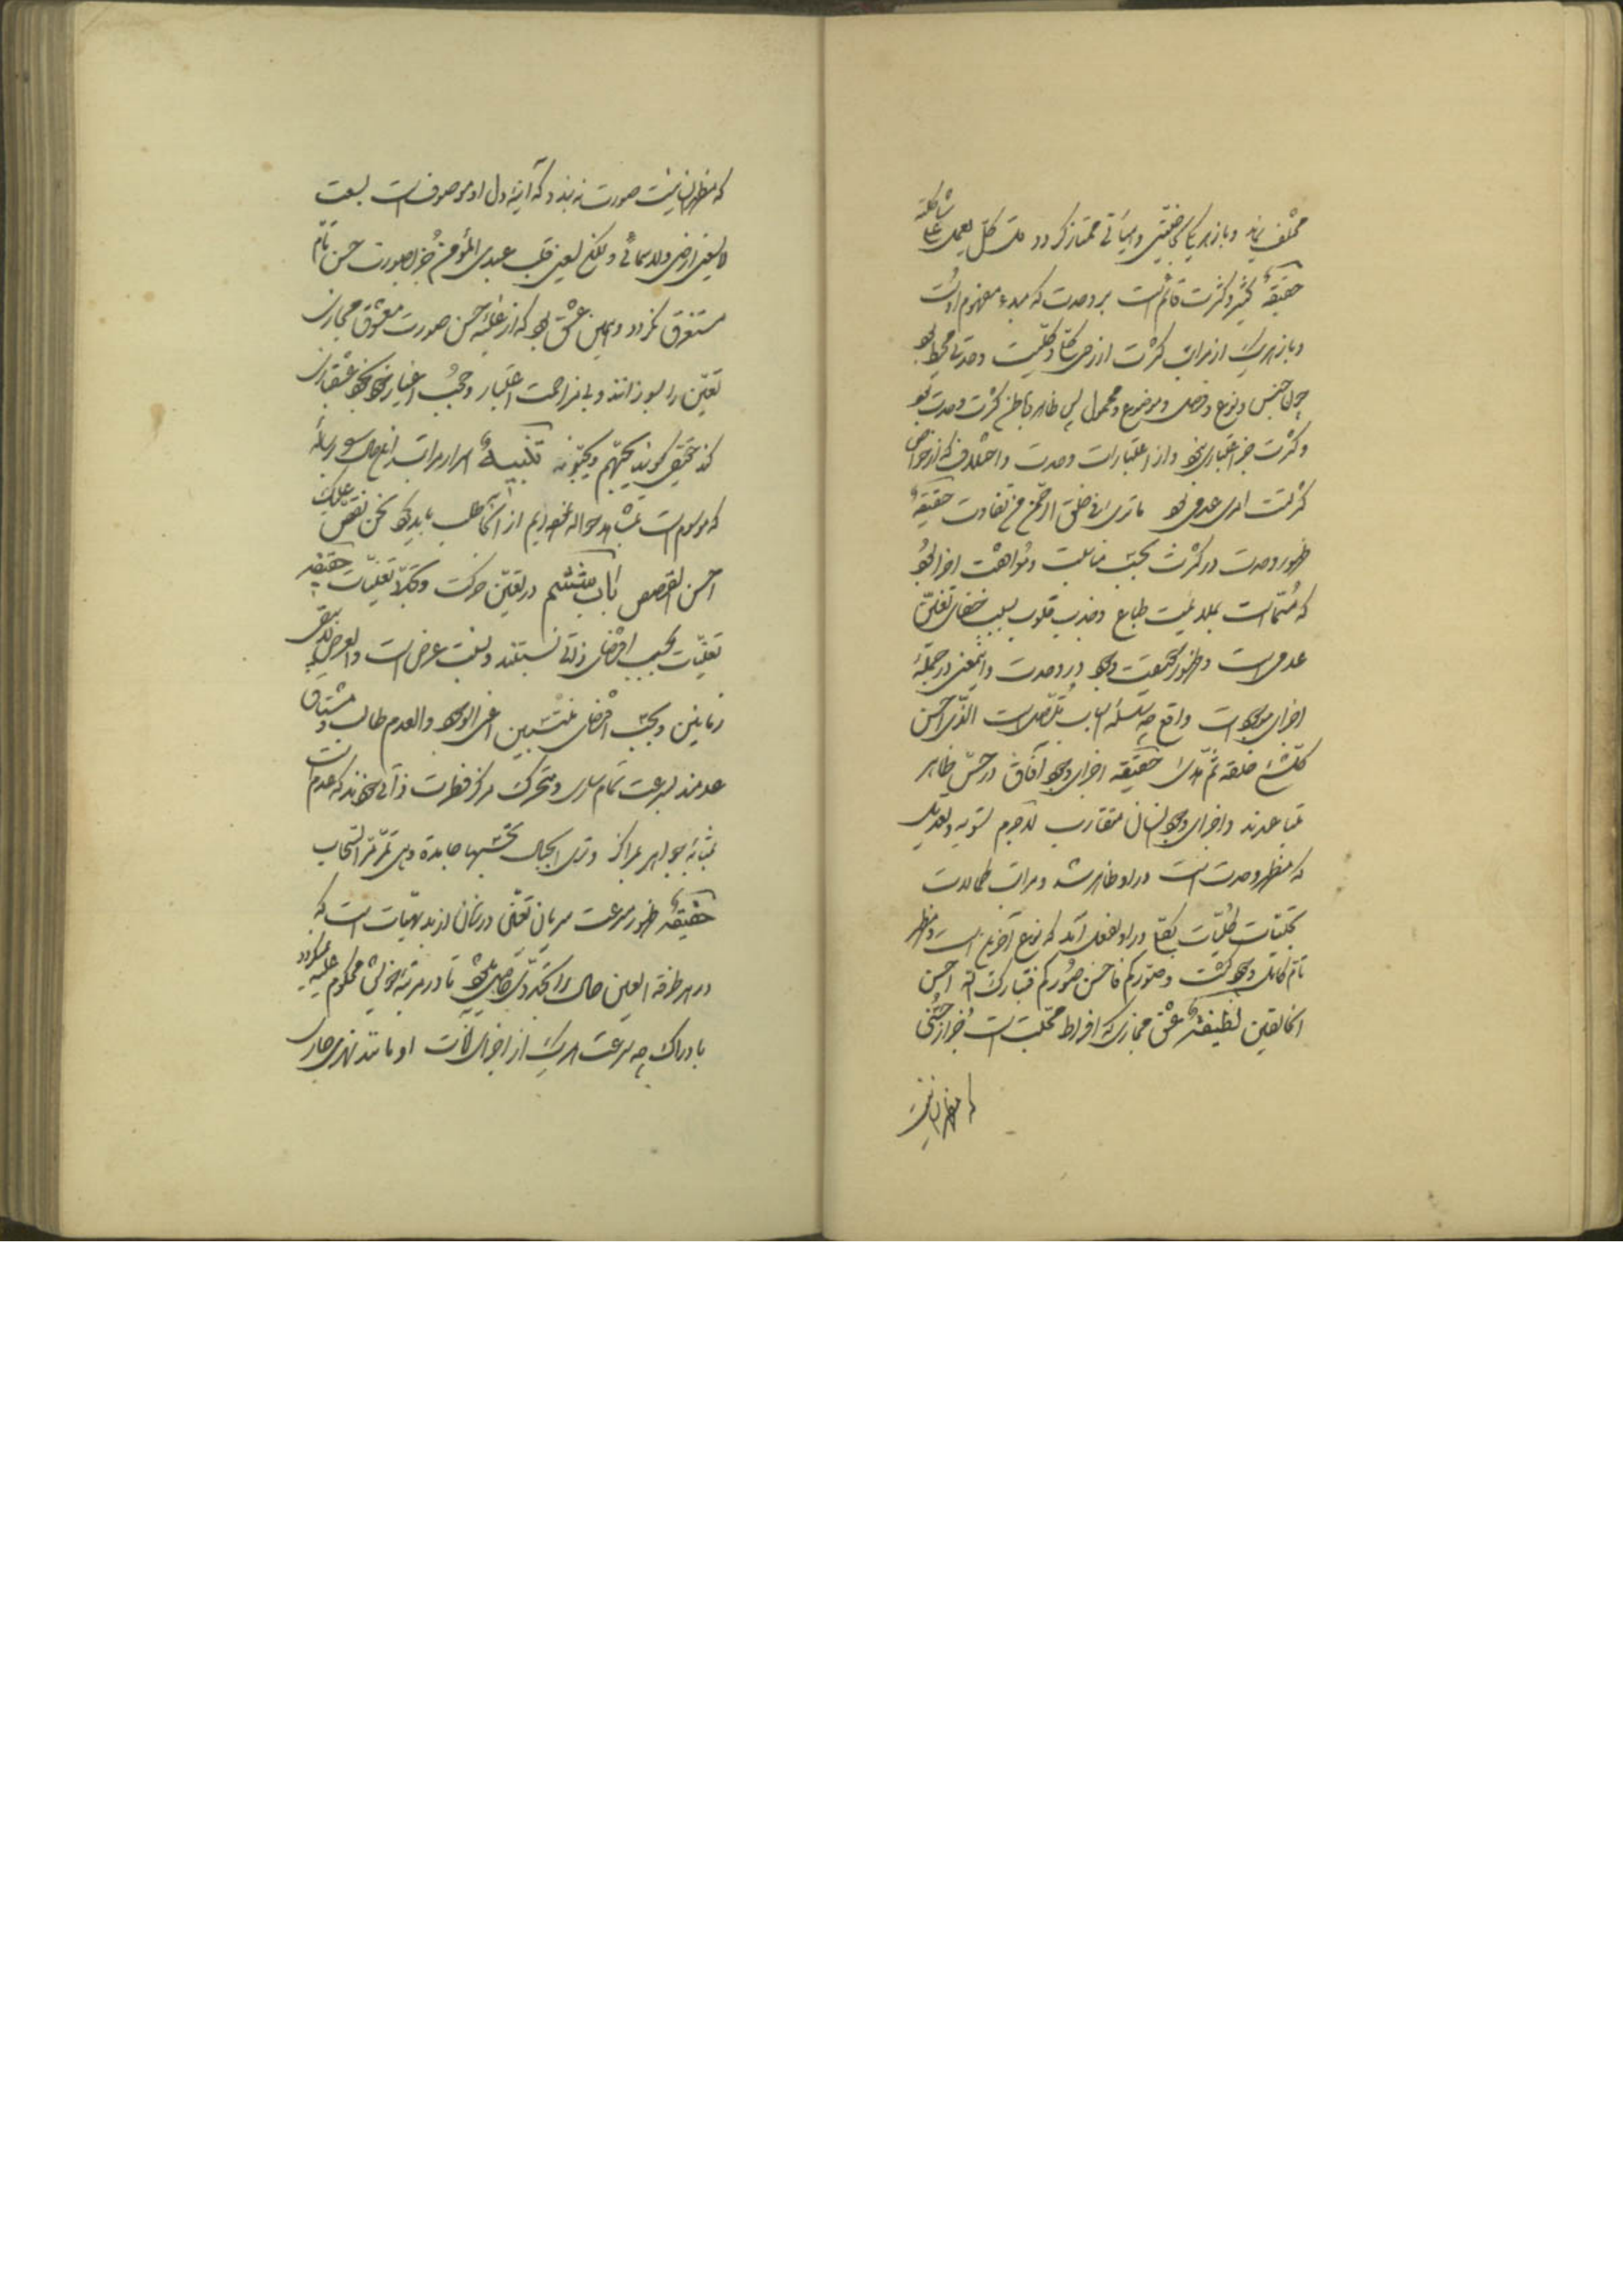 مختلف نماید و باز هر یک بخاصیتی و هیأتی ممتاز گردد قل کل یعمل علی شاکلته
حقیقة کثیر و کثرت قائم است بر وحدت که مبدء مفهوم اوست
و باز هر یک از مراتب کثرت از روی کلیت وحدتی محیط بود
چون جنس و نوع و فصل و موضوع و محمول پس ظاهر و باطن کثرت وحدت بود
و کثرت جز اعتباری نبود و از اعتبارات وحدت و اختلاف که از خواص
کثرتست امری عدمی بود ما تری فی خلق الرحمن من تفاوت حقیقة
ظهور وحدت در کثرت بحسب مناسبت و مواهت اجزا بود
که است بملایمت طباع و جذب قلوب بسبب خفای تعین
عدمی است و ظهور جمعیت وجود در وحدت و این معنی در جمله
اجزای موجودات واقع چه سلسله اسباب متصل است الذی احسن
کل شیء خلقه ثم هدی حقیقة اجزای وجود آفاق در حس ظاهر
متباعدند و اجزای وجود انسان متقارب لاجرم تسویه و تعدیل
که مظهر وحدت است در او ظاهر شد و مراتب کمالات
تجلیات کلیات بتمام در او بفعل آمد که نوع آخرین است و مظهر
تام کاینات وجود گشت و صورکم فاحسن صورکم فتبارک الله احسن
الخالقین لطیفة عشق مجازی که افراط محبت است جز از حسنی
که مظهر انسانیت
که مظهر انسانیت صورت نه بندد که آینه دل او موصوف است بسعت
لا یسعنی ارضی ولا سمائی و لکن یسعنی قلب عبدی المؤمن جز بصورت حسن تام
مستغرق نگردد و همین عشق بود که از غلبه حسن صورت معشوق مجازی
تعین را بسوزاند و بی مزاحمت اعتبار و حجب اغیار خود بخود عشقبازی
کند حقیقی گویند یحبهم و یحبونه تنبیه اسرار مراتب رسالۀ
که موسوم است حواله نموده‌ایم از آنجا طلب باید کرد نحن نقص علیک
احسن القصص باب ششم در تعین حرکت و تجدد تعینات حقیقة
تعینات بحسب اقتضای ذاتی نسبتند و نسبت عرض است والعرض لا یبقی
زمانین و بحسب اقتضای منتسبین اعنی الوجود والعدم طالب و مشتاق
عدمند بسرعت تمام ساری و متحرک مرکز فطرت ذاتی خودند که عدم است
بمثابه جواهر بمراکز و تری الجبال تحسبها جامدة و هی تمر مر السحاب
حقیقة ظهور سرعت سریان تعین در زمان از بدیهیات است که
در هر طرفة العین حال را تجددی حاصل میشود تا در مرتبۀ خویش محکوم علیه میگردد
بادراک چه سرعت هر یک از اجزای ذات او مانند نهری جاری